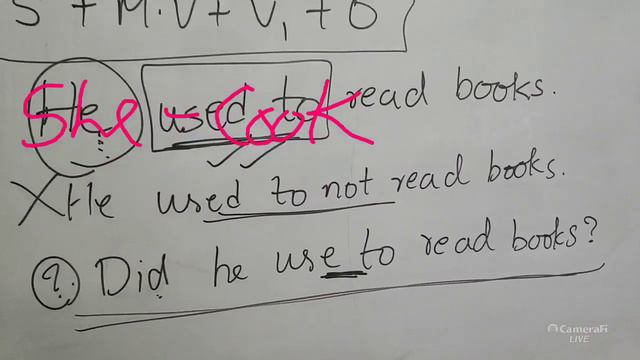 S + M.V + V₁ + O
He used to read books.
She - Cook
X He used to not read books.
? Did he use to read books?
CameraFi
LIVE